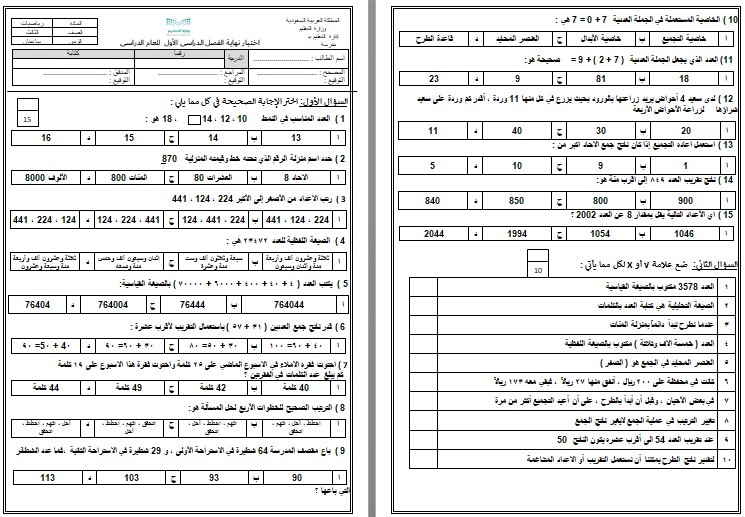 المملكة العربية السعودية
وزارة التعليم
إدارة التعليم بـ
مدرسة
المادة رياضيات
الصف الثالث
الزمن ساعتان
اختبار نهاية الفصل الدراسي الأول للعام الدراسي
اسم الطالب : الدرجة رقما كتابة
المصحح : المراجع : المدقق :
التوقيع : التوقيع : التوقيع :
السؤال الأول: اختر الإجابة الصحيحة في كل مما يلي :
15
1 ) العدد المناسب في النمط 10 ، 12 ، 14 ، ، 18 هو :
أ 13 ب 14 ج 15 د 16
2 ) حدد اسم منزلة الرقم الذي تحته خط وقيمته المنزلية 870
أ الآحاد 8 ب العشرات 80 ج المئات 800 د الألوف 8000
3 ) رتب الأعداد من الأصغر إلى الأكبر 224 ، 124 ، 441
أ 124 ، 224 ، 441 ب 224 ، 441 ، 124 ج 441 ، 224 ، 124 د 124 ، 224 ، 441
4 ) الصيغة اللفظية للعدد ٢٣٤٧٢ هي :
5 ) يكتب العدد ( ٤ + ٤٠ + ٤٠٠ + ٦٠٠٠ + ٧٠٠٠٠ ) بالصيغة القياسية:
أ 764044 ب 76444 ج 764004 د 76404
6 ) قدر ناتج جمع العددين ( ٣١ + ٥٧ ) باستعمال التقريب لأقرب عشرة :
أ ٤٠ + ٦٠= ١٠٠ ب ٣٠ + ٥٠= ٨٠ ج ٣٠ + ٦٠= ٩٠ د ٤٠ + ٥٠= ٩٠
7 ) احتوت فقرة الاملاء في الاسبوع الماضي على ٢٥ كلمة واحتوت فقرة هذا الاسبوع على ١٩ كلمة
كم يبلغ عدد الكلمات في الفقرتين ؟
أ 40 كلمة ب 42 كلمة ج 49 كلمة د 44 كلمة
8 ) الترتيب الصحيح للخطوات الأربع لحل المسألة هو:
9 ) باع مقصف المدرسة 64 شطيرة في الاستراحة الأولى ، و 29 شطيرة في الاستراحة الثانية ،فما عدد الشطائر
أ 90 ب 93 ج 103 د 113
التي باعها ؟
10 ) الخاصية المستعملة في الجملة العددية 7 + 0 = 7 هي :
أ خاصية التجميع ب خاصية الأبدال ج العنصر المحايد د قاعدة الطرح
11) العدد الذي يجعل الجملة العددية ( 7 + 2 ) + 9 = صحيحة هو:
أ 18 ب 81 ج 9 د 23
12 ) لدى سعيد 4 أحواض يريد زراعتها بالورود بحيث يزرع في كل منها 11 وردة ، أقدر كم وردة على سعيد
شراؤها لزراعة الأحواض الأربعة
أ 20 ب 30 ج 40 د 11
13 ) استعمل اعاده التجميع إذا كان ناتج جمع الآحاد أكبر من :
أ 9 ب 1 ج 10 د 5
14 ) ناتج تقريب العدد ٨٤٩ إلى أقرب مئة هو:
أ 900 ب 800 ج 850 د 840
15 ) أي الأعداد التالية يقل بمقدار 8 عن العدد 2002 ؟
أ 1046 ب 1054 ج 1994 د 2044
السؤال الثاني: ضع علامة √ أو X لكل مما يأتي :
10
١ العدد 3578 مكتوب بالصيغة القياسية
٢ الصيغة التحليلية هي كتابة العدد بالكلمات
٣ عندما نطرح نبدأ دائماً بمنزلة المئات
٤ العدد ( خمسة آلاف وثلاثة ) مكتوب بالصيغة اللفظية
٥ العنصر المحايد في الجمع هو ( الصفر )
٦ كانت في محفظة على ٢٠٠ ريال ، أنفق منها ٢٧ ريالاً ، فبقي معه ١٧٣ ريالاً
٧ في بعض الأحيان ، وقبل أن أبدأ بالطرح ، على أن أعيد التجميع أكثر من مرة
٨ تغيير الترتيب في عملية الجمع لايغير ناتج الجمع
٩ عند تقريب العدد 54 الى أقرب عشره يكون الناتج 50
١٠ لتقدير ناتج الطرح يمكننا أن نستعمل التقريب أو الأعداد المتناغمة